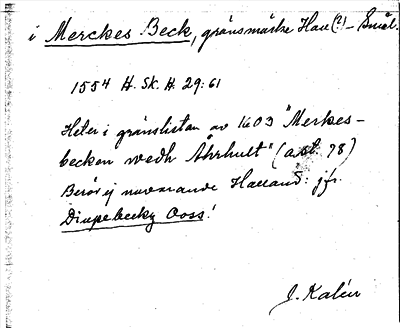 i Merckes Beck, gränsmärke Hall(?) - Smål.
1554 H. Sk. H. 29:61
Heter i gränslistan av 1603 "Merkes-
becken wedh Åhrhult" (a.st. 78)
Berör ej nuvarande Halland: jfr.
Diupebeckz Ooss!
J. Kalén